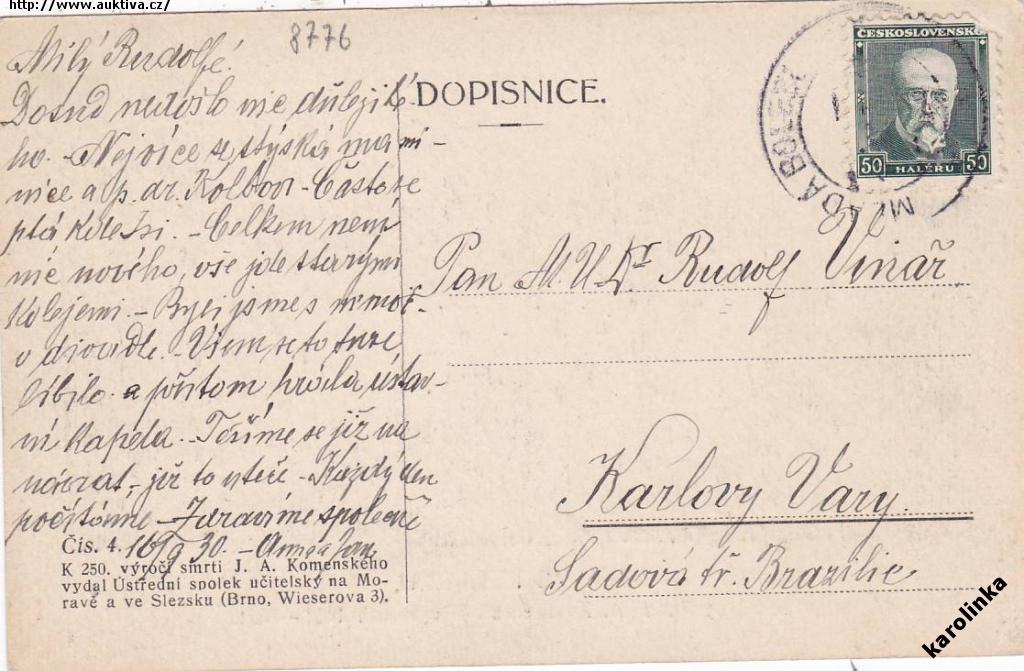 http://www.auktiva.cz/
8776
Milý Rudolfe!
Dosud nedošlo nic důležité
ho. - Nejvíce se stýská mami-
nce a p. dr. Kolbovi - Často se
ptá kde jsi. - Celkem není
nic nového, vše jde starými
kolejemi. - Byli jsme s nimi
v divadle. - Všem se to tuze
líbilo a přitom hrála ústav-
ní kapela. - Těšíme se již na
návrat, - již to uteče - Každý den
počítáme - Zdravíme společně
16/9 30. -
Čís. 4.
K 250. výročí smrti J. A. Komenského
vydal Ústřední spolek učitelský na Mo-
ravě a ve Slezsku (Brno, Wieserova 3).
DOPISNICE.
ČESKOSLOVENSKO
50 HALÉŘŮ 50
MLADÁ BOLESLAV
Pan M.U.Dr Rudolf Vinař
Karlovy Vary.
Sadová tř. Brazilie
karolinka